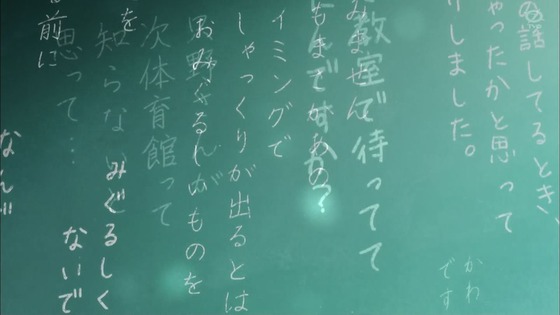 話してるとき、
ゃったかと思って
しました。
かわ
です
教室で待ってて
みません
もまさかあの
んですか？
イミングで
しゃっくりが出るとは
おみぐるしいものを
次体育館って
知らない
を
みぐるしく
思って…
ないで
前に
なん